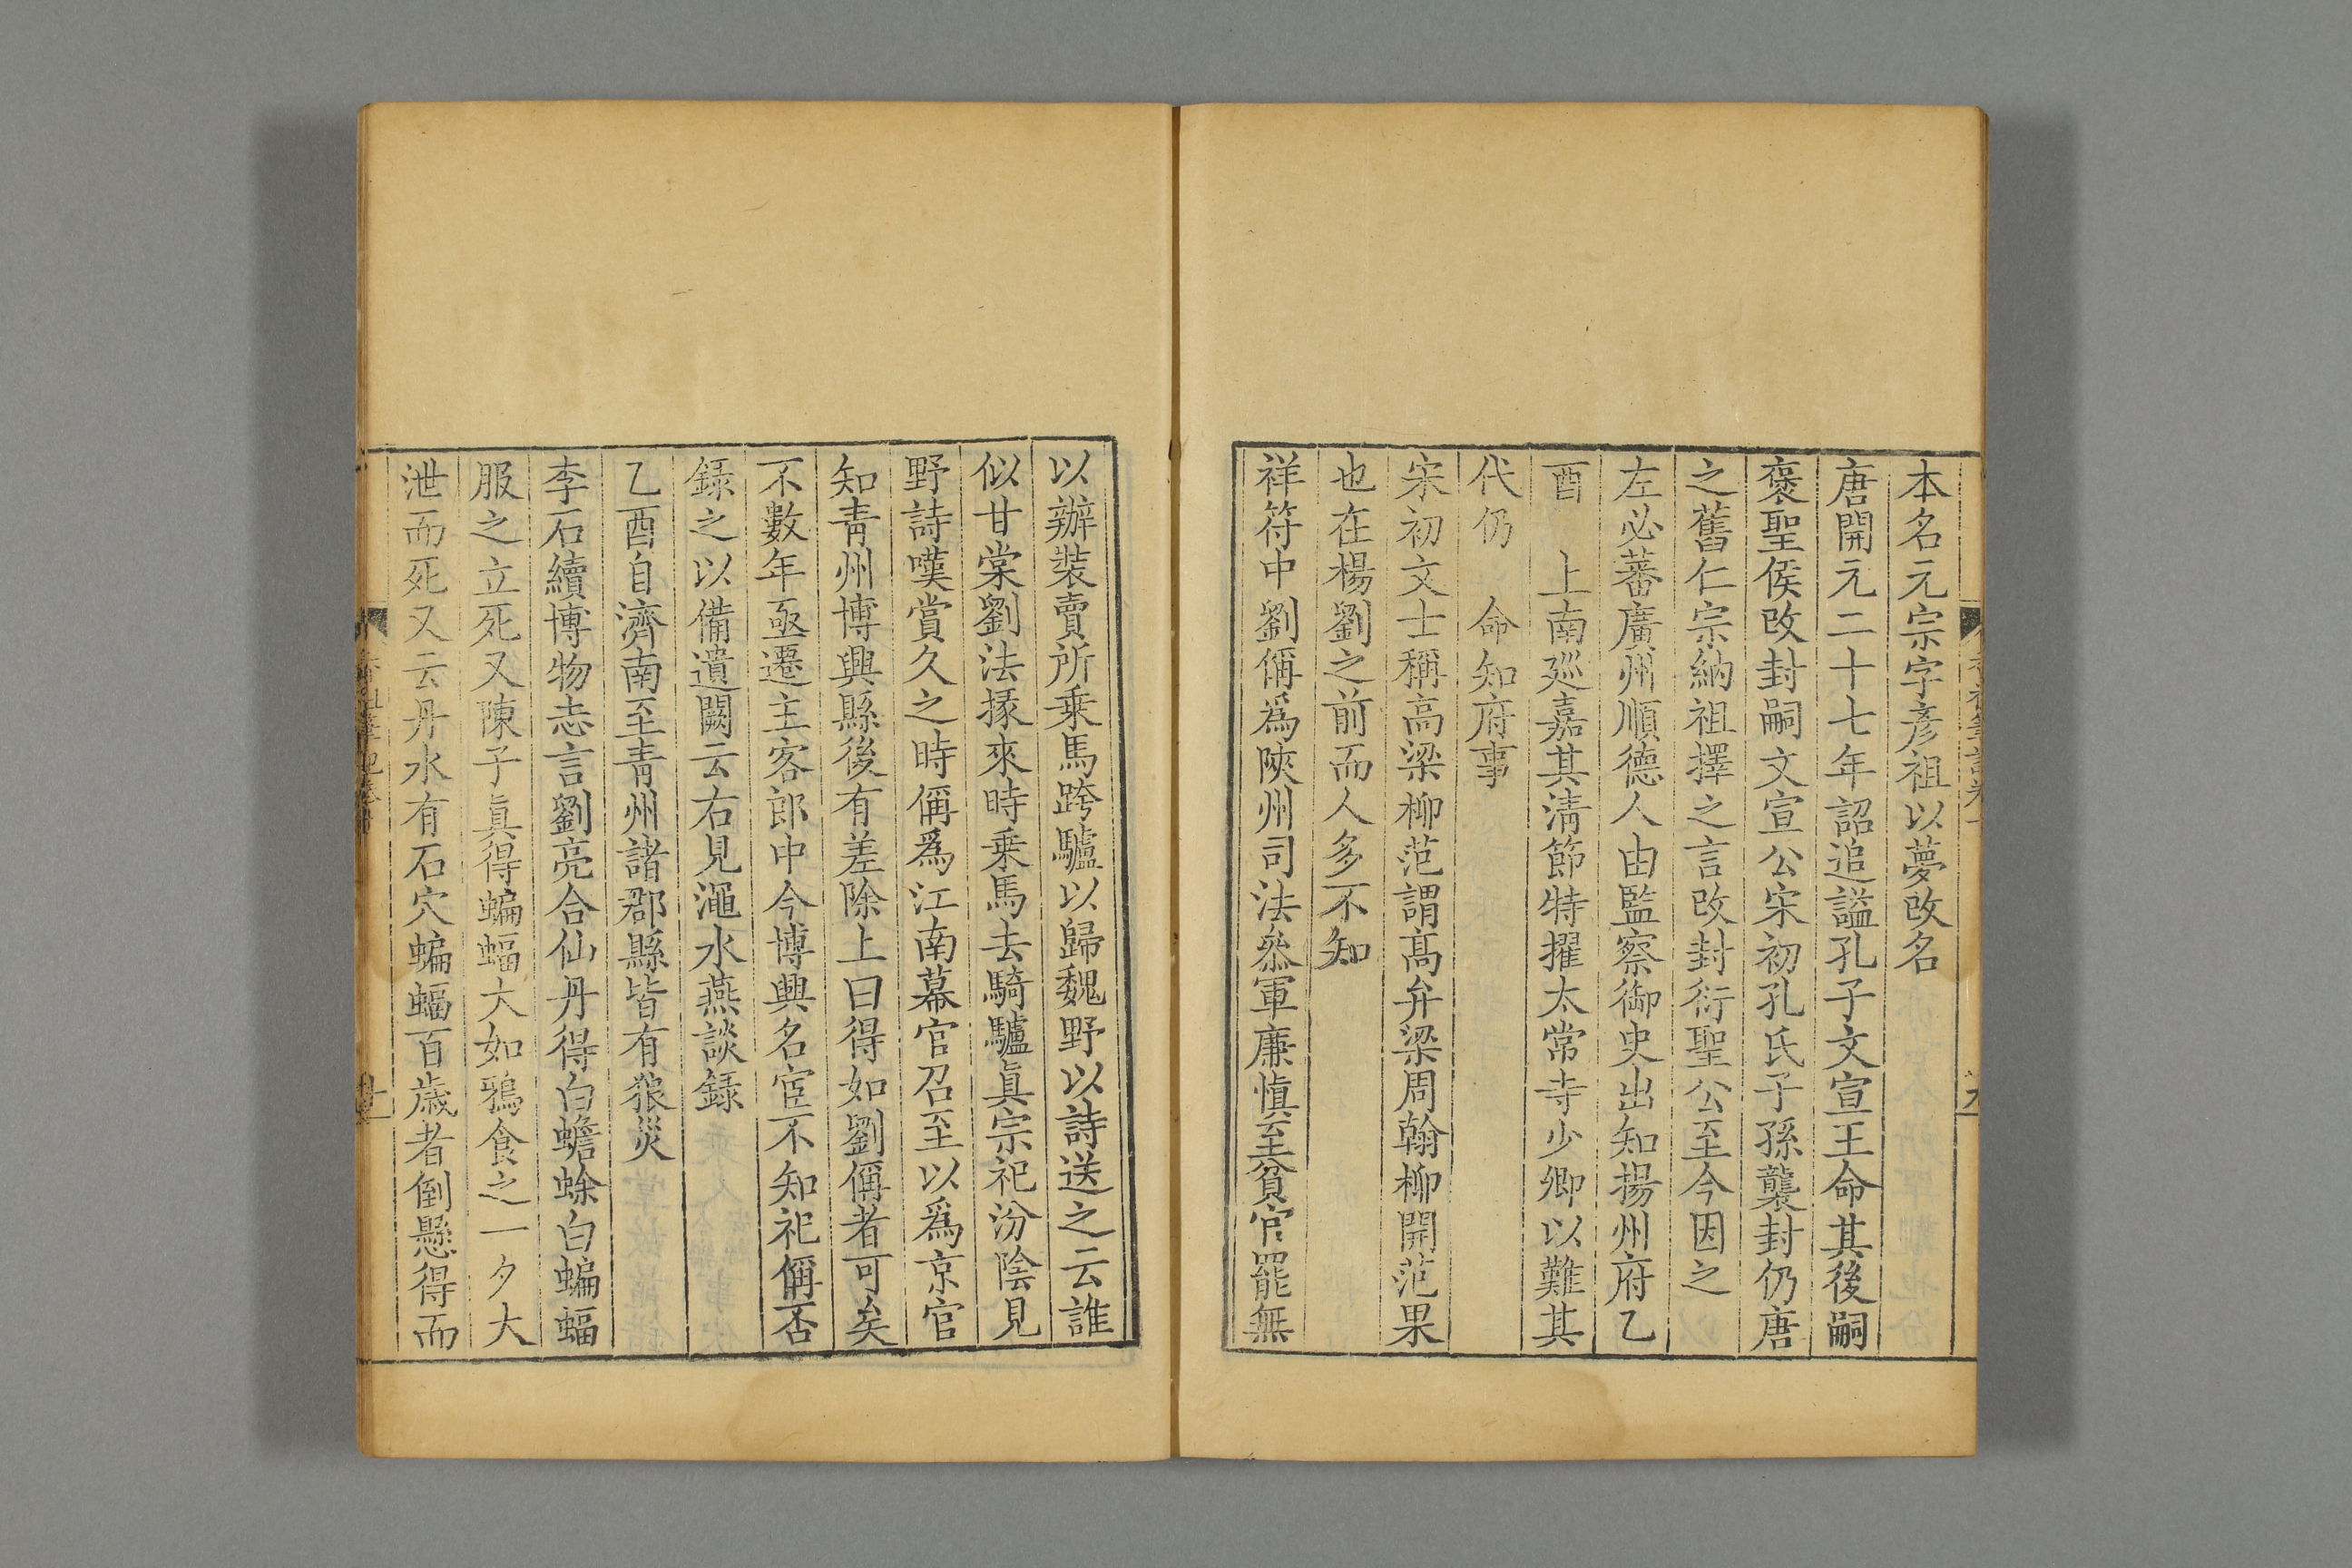 本名元宗字彥祖以夢改名
唐開元二十七年詔追謚孔子文宣王命其後嗣
褒聖侯改封嗣文宣公宋初孔氏子孫襲封仍唐
之舊仁宗納祖擇之言改封衍聖公至今因之
左必蕃廣州順德人由監察御史出知揚州府乙
酉　上南廵嘉其淸節特擢太常寺少卿以難其
代仍　命知府事
宋初文士稱高梁柳范謂髙弁梁周翰柳開范果
也在楊劉之前而人多不知
祥符中劉偁爲陜州司法叅軍廉愼至貧官罷無
以辦裝賣所乗馬跨驢以歸魏野以詩送之云誰
似甘棠劉法掾來時乗馬去騎驢眞宗祀汾陰見
野詩嘆賞久之時偁爲江南幕官召至以爲京官
知靑州博興縣後有差除上曰得如劉偁者可矣
不數年亟遷主客郎中今博興名宦不知祀偁否
録之以備遺闕云右見澠水燕談録
乙酉自濟南至靑州諸郡縣皆有狼災
李石續博物志言劉亮合仙丹得白蟾蜍白蝙蝠
服之立死又陳子眞得蝙蝠大如鴉食之一夕大
泄而死又云丹水有石穴蝙蝠百歲者倒懸得而